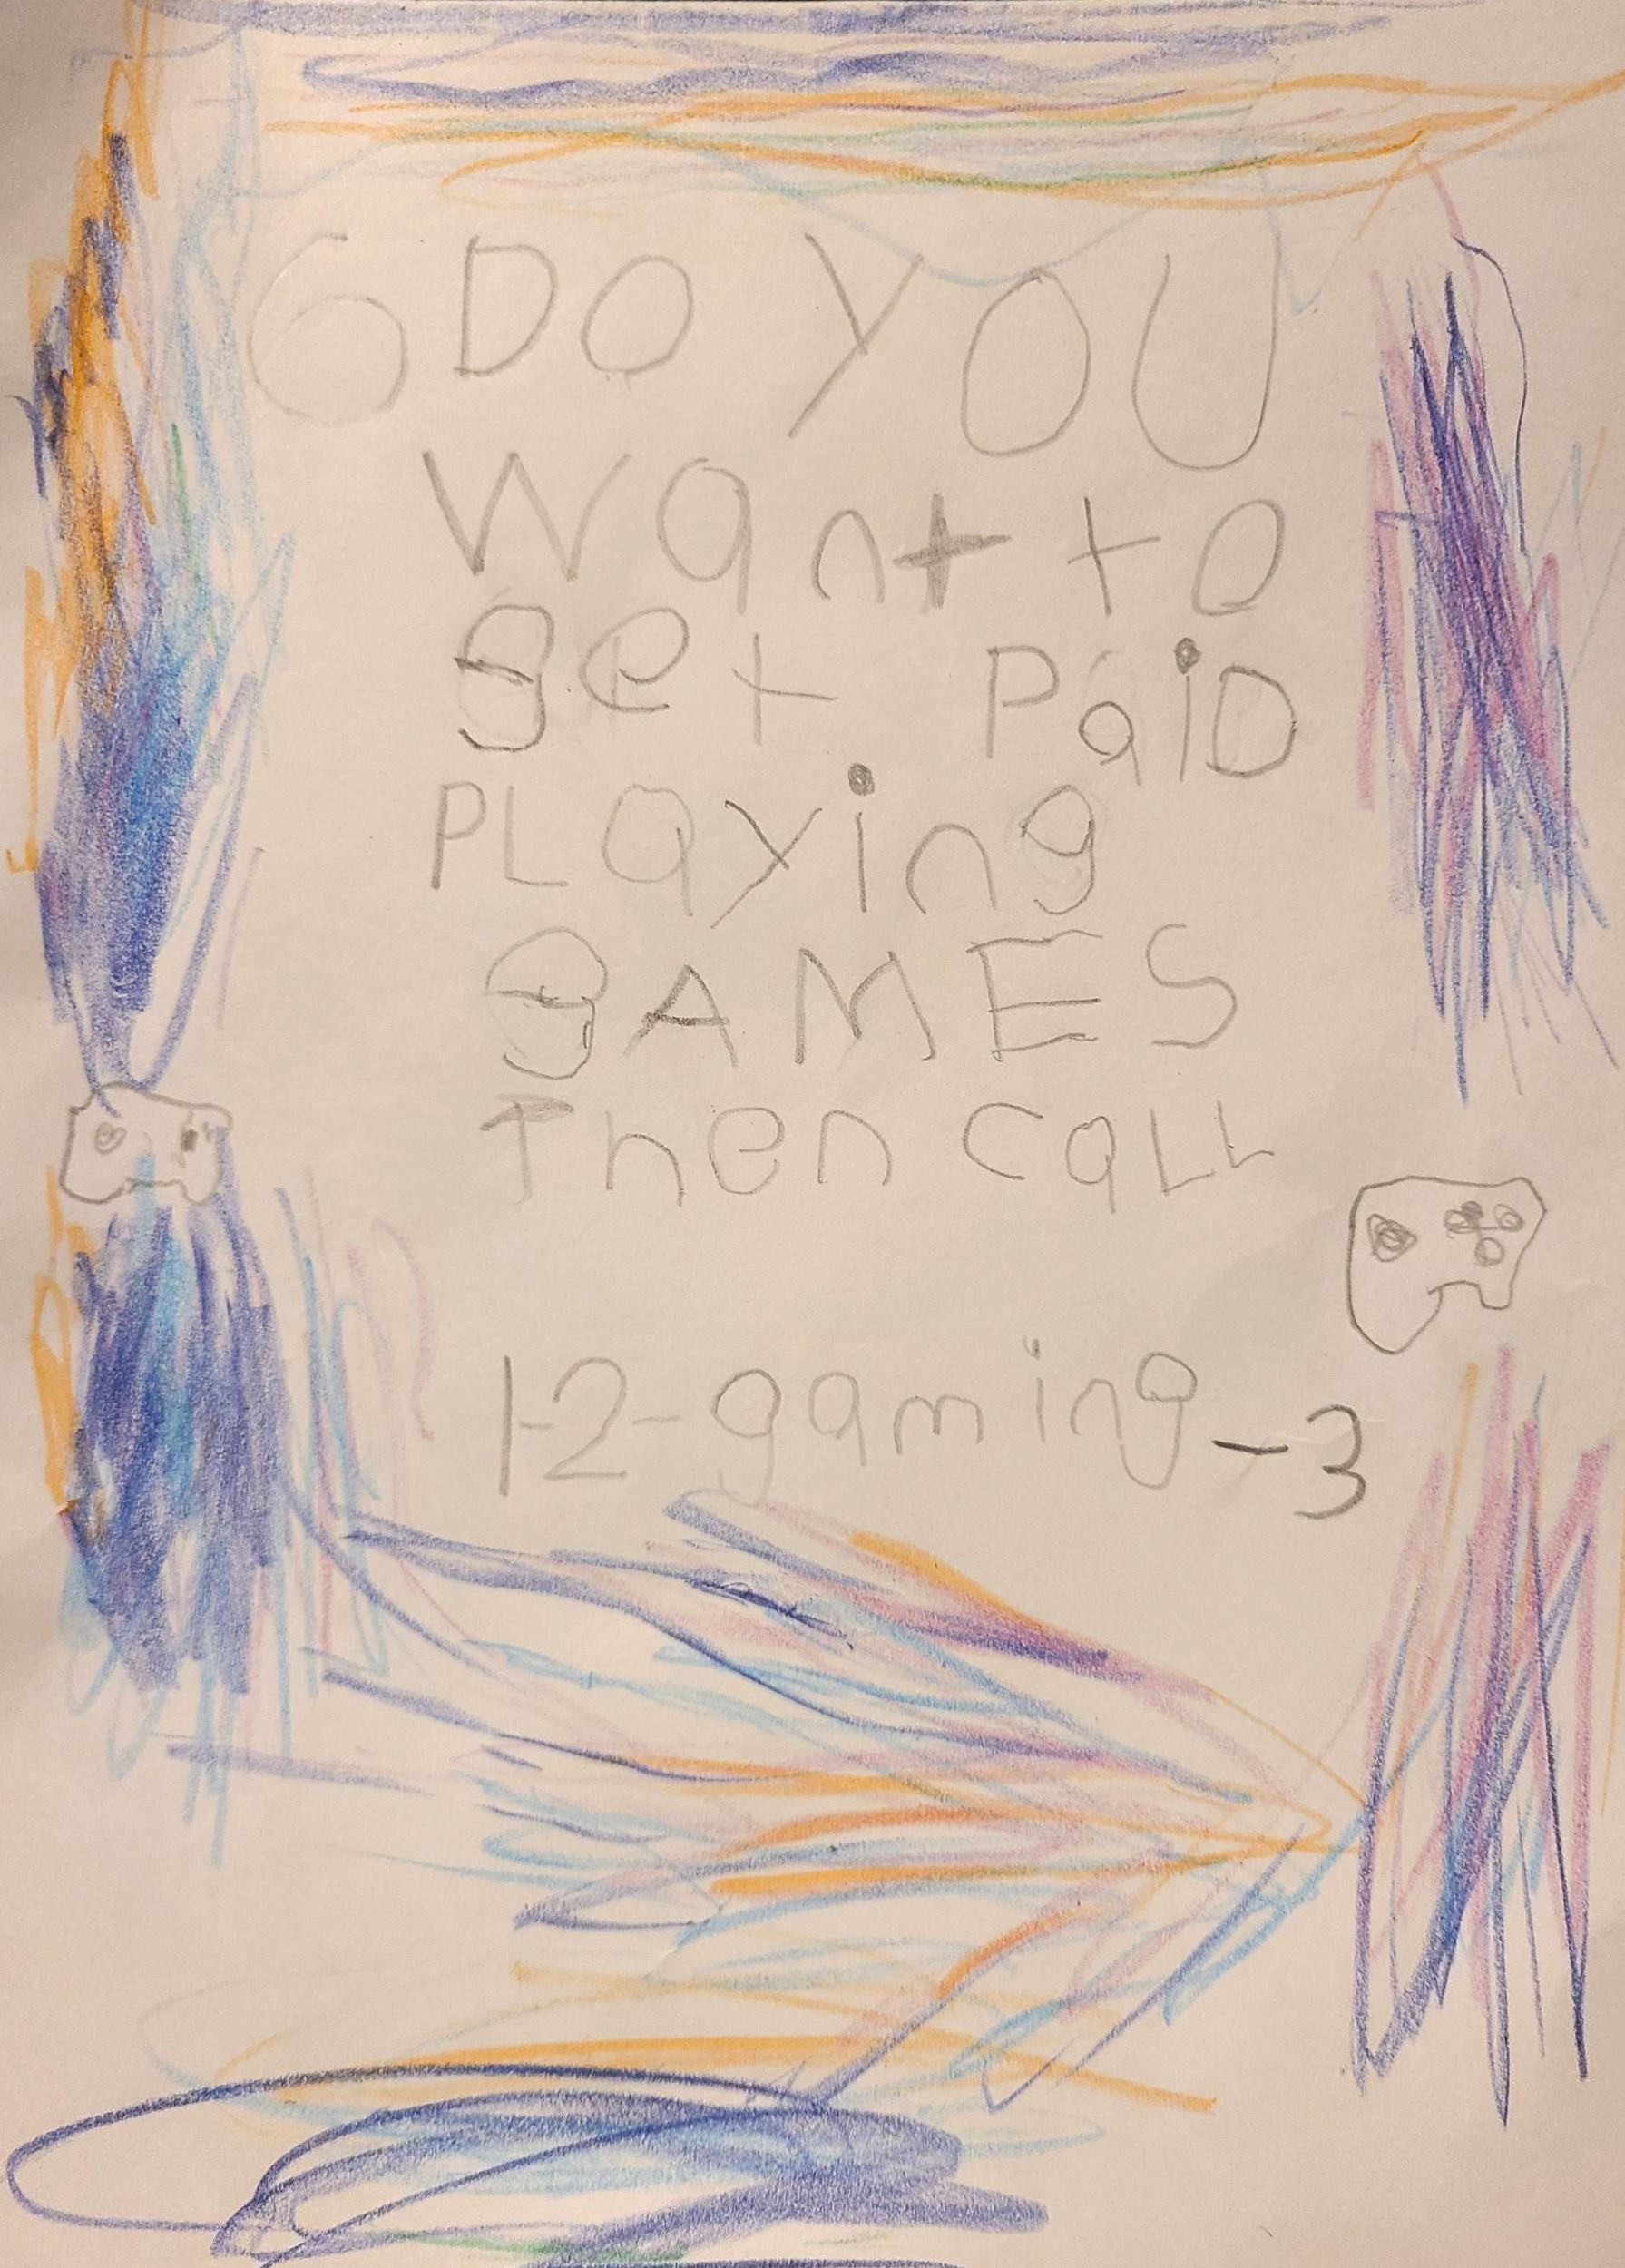 6 DO YOU
Want to
get PaiD
PLaying
gAMES
Then caLL
1-2-gaming-3